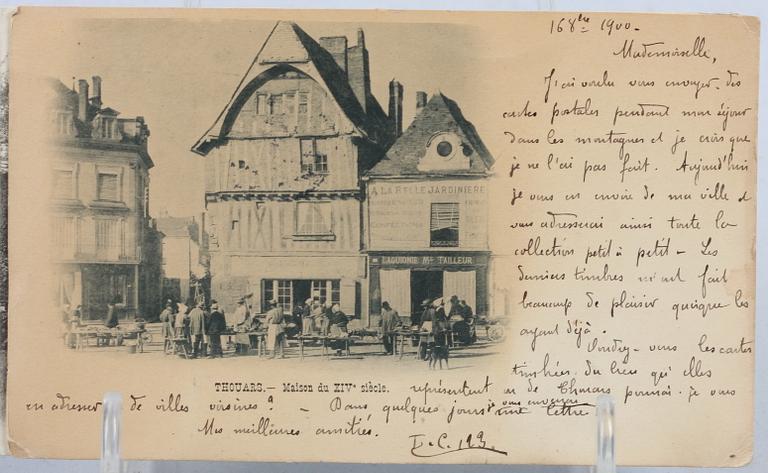 16 8bre 1900.
Mademoiselle,
J'ai voulu vous envoyer des
cartes postales pendant mon séjour
dans les montagnes et je crois que
je ne l'ai pas fait. Aujourd'hui
je vous en envoie de ma ville et
vous adresserai ainsi toute la
collection petit à petit - Les
derniers timbres m'ont fait
beaucoup de plaisir quoique les
ayant déjà.
Voudrez-vous les cartes
timbrées du lieu qu'elles
représentent ou de Thouars pourrai-je vous
en adresser de villes voisines? - Dans quelques jours je vous enverrai une lettre
Mes meilleures amitiés.
A LA BELLE JARDINIERE
LAGUIONIE Md TAILLEUR
THOUARS. — Maison du XIVe siècle.